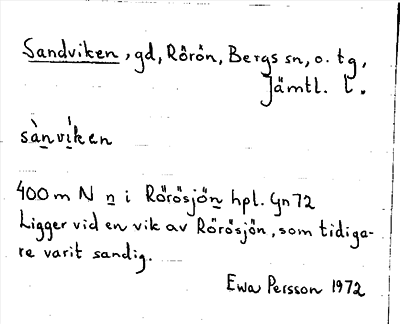 Sandviken, gd, Rörön, Bergs sn, o. tg,
Jämtl. l.
sànvíken
400 m N n i Rörösjön hpl. Gn 72
Ligger vid en vik av Rörösjön, som tidiga-
re varit sandig.
Ewa Persson 1972